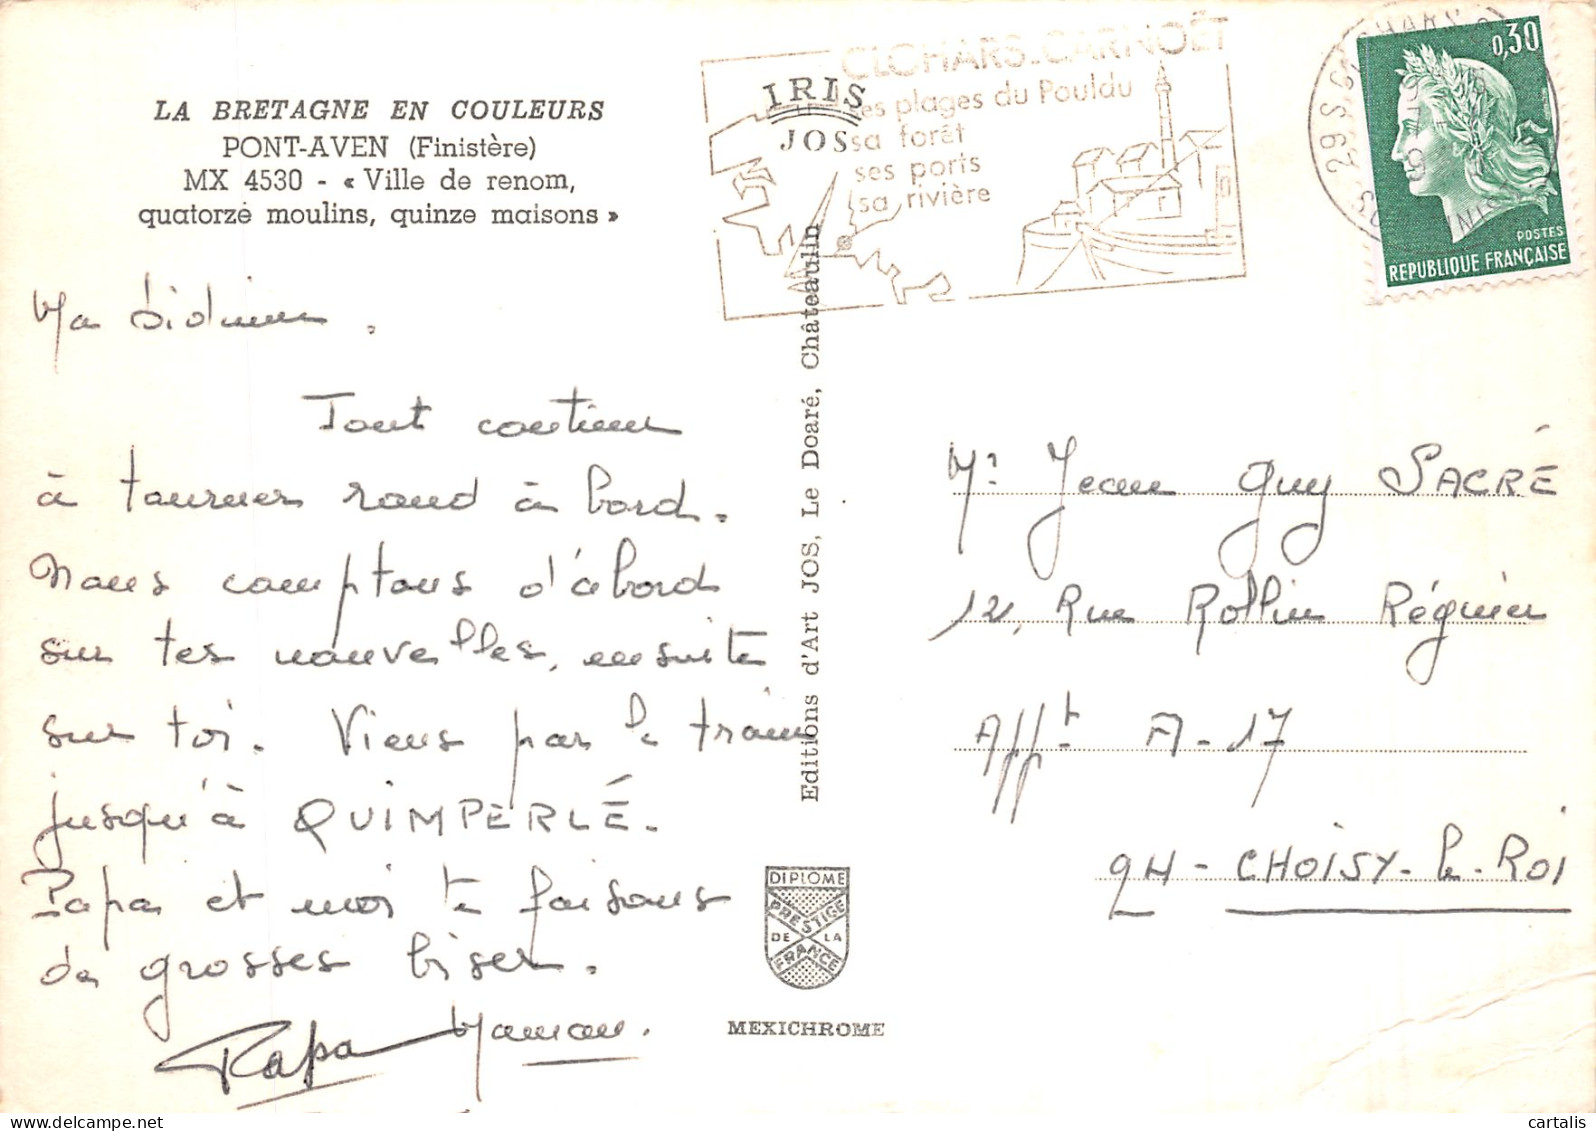 LA BRETAGNE EN COULEURS
PONT-AVEN (Finistère)
MX 4530 - « Ville de renom,
quatorze moulins, quinze maisons »
IRIS
JOS
CLOHARS-CARNOËT
ses plages du Pouldu
sa forêt
ses ports
sa rivière
0,30
POSTES
REPUBLIQUE FRANÇAISE
Ma
Tout continue
à tourner rond à bord.
Nous comptons d'abord
sur tes nouvelles, ensuite
sur toi. Viens par le train
jusqu'à QUIMPERLÉ.
Papa et moi te faisons
de grosses bises.
Maman.
Papa
Editions d'Art JOS, Le Doaré, Châteaulin
DIPLOME
PRESTIGE
DE LA
FRANCE
MEXICHROME
Mr Jean Guy SACRÉ
12, Rue Rollin Régnier
Appt A-17
94 - CHOISY-le-ROI
cartalis